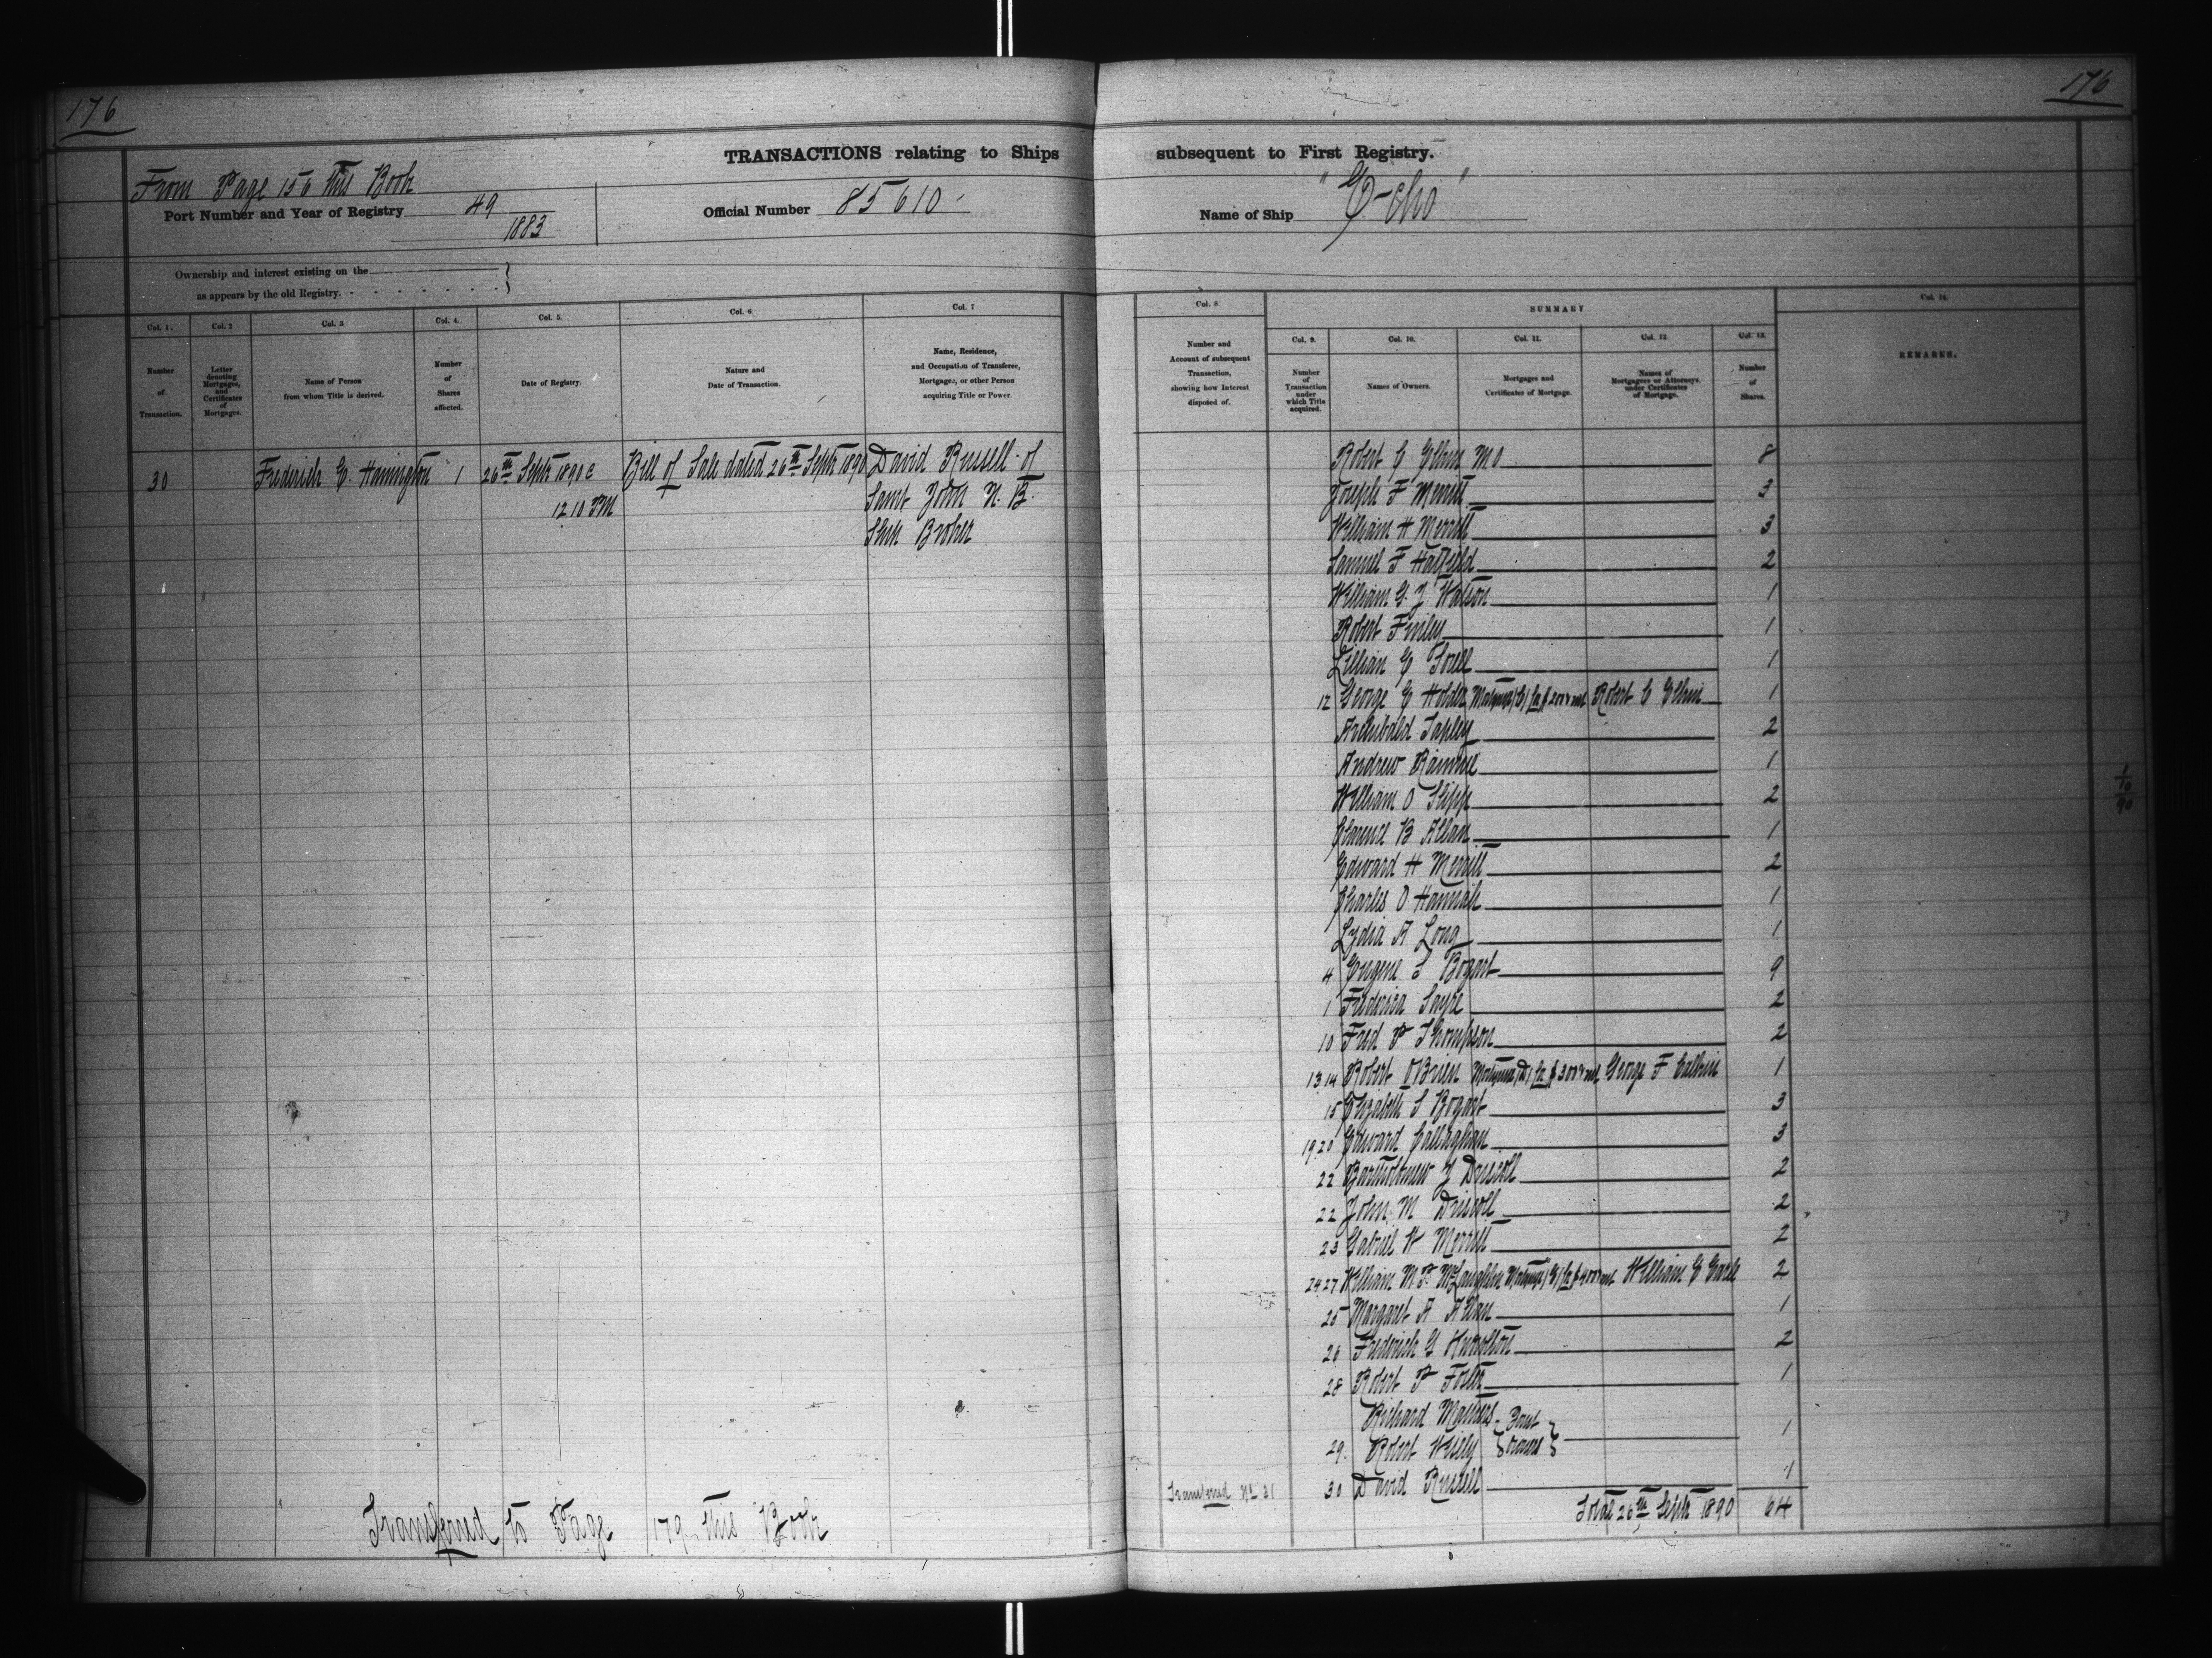 176
176
TRANSACTIONS relating to Ships subsequent to First Registry.
From Page 156 this Book
Port Number and Year of Registry 49
1883
Official Number 85610
Name of Ship "Echo"
Ownership and interest existing on the
as appears by the old Registry.
Col. 1.
Number
of
Transaction.
Col. 2
Letter
denoting
Mortgages,
and
Certificates
of
Mortgages.
Col. 3
Name of Person
from whom Title is derived.
Col. 4.
Number
of
Shares
affected.
Col. 5.
Date of Registry.
Col. 6.
Nature and
Date of Transaction.
Col. 7
Name, Residence,
and Occupation of Transferee,
Mortgagee, or other Person
acquiring Title or Power.
Col. 8
Number and
Account of subsequent
Transaction,
showing how Interest
disposed of.
SUMMARY
Col. 9.
Number
of
Transaction
under
which Title
acquired.
Col. 10.
Names of Owners.
Col. 11.
Mortgages and
Certificates of Mortgage.
Col. 12
Names of
Mortgagees or Attorneys,
under Certificates
of Mortgage.
Col. 13.
Number
of
Shares.
Col. 14.
REMARKS.
30 Frederick E. Hanington 1 26th Septr 1890 Bill of Sale dated 26th Septr 1890 David Russell of
12 10 PM Saint John N. B.
Ship Broker
Robert C Elkin M O 8
Joseph F Merritt 3
William H Merritt 3
Samuel F Hatfield 2
William G. J Watson 1
Robert Finley 1
Lillian E 1
12 George E Holder Mortgage for $200 Robert C Elkin 1
Archibald Tapley 2
Andrew 1
William O Slipp 2
Clarence B Allan 1
Edward H Merritt 2
Charles O Hannah 1
Lydia A Long 1
4 Eugene S Bogart 9
1 Frederica Sayre 2
10 Fred P Thompson 2
13 14 Robert OBrien Mortgage (D) for $300 George F Calkin 1
15 Elizabeth S Bogart 3
19.20 Edward Callaghan 3
22 Bartholomew J Driscoll 2
22 John M Driscoll 2
23 Gabriel W Merritt 2
24 27 William M. F. McLaughlin Mortgage for $400 William E Earle 2
25 Margaret A Allan 1
26 Frederick G Knowlton 2
28 Robert P Foster 1
Richard Joint
29. Robert Wisely owners 1
Transferred No 31 30 David Russell 1
Total 26th Septr 1890 64
1/10/90
Transferred to Page 179 this Book